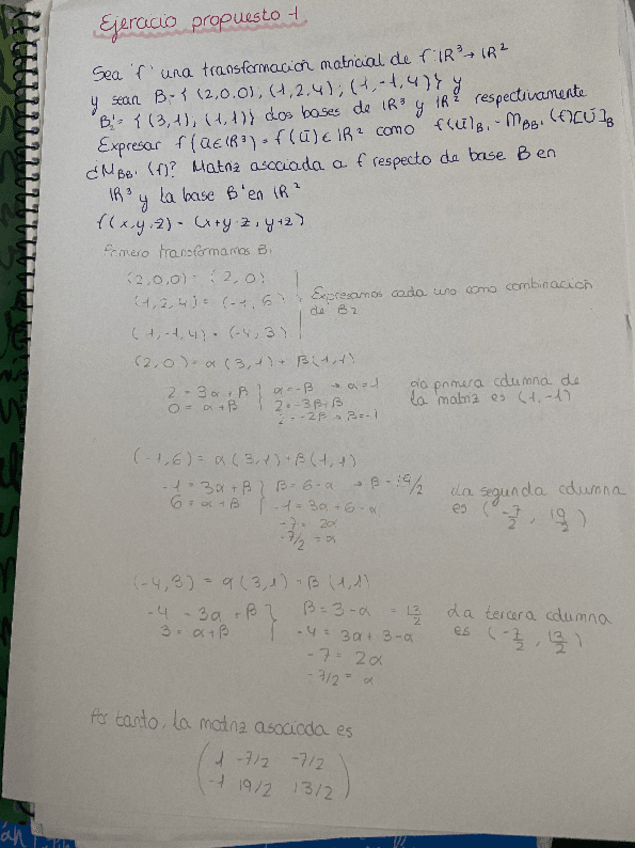 Ejercicio propuesto 1
Sea 'f' una transformación matricial de f: IR³ → IR²
y sean B₁ = { (2,0,0); (1,2,4); (1,-1,4)} y
B₂' = { (3,1); (1,1)} dos bases de IR³ y IR² respectivamente
Expresar f(ū∈IR³) = f(ū) ∈ IR² como f(ū)B₁ - MBB'(f)[Ū]B
¿MBB'(f)? Matriz asociada a f respecto de base B en
IR³ y la base B' en IR²
f(x,y,z) = (x+y-z, y+z)
Primero transformamos B₁
(2,0,0) = (2,0)
(1,2,4) = (-1,6)
(1,-1,4) = (-4,3)
Expresamos cada uno como combinación
de B2
(2,0) = α(3,1) + β(1,1)
2 = 3α+β } α=-β → α=1
0 = α+β } 2=-3β+β
2 = -2β → β=-1
La primera columna de
la matriz es (1,-1)
(-1,6) = α(3,1) + β(1,1)
-1 = 3α+β } β=6-α → β=19/2
6 = α+β } -1 = 3α+6-α
-7 = 2α
-7/2 = α
La segunda columna
es (-7/2, 19/2)
(-4,3) = α(3,1) + β(1,1)
-4 = 3α+β } β = 3-α = 13/2
3 = α+β } -4 = 3α+3-α
-7 = 2α
-7/2 = α
La tercera columna
es (-7/2, 13/2)
Por tanto, la matriz asociada es
( 1 -7/2 -7/2 )
( -1 19/2 13/2 )